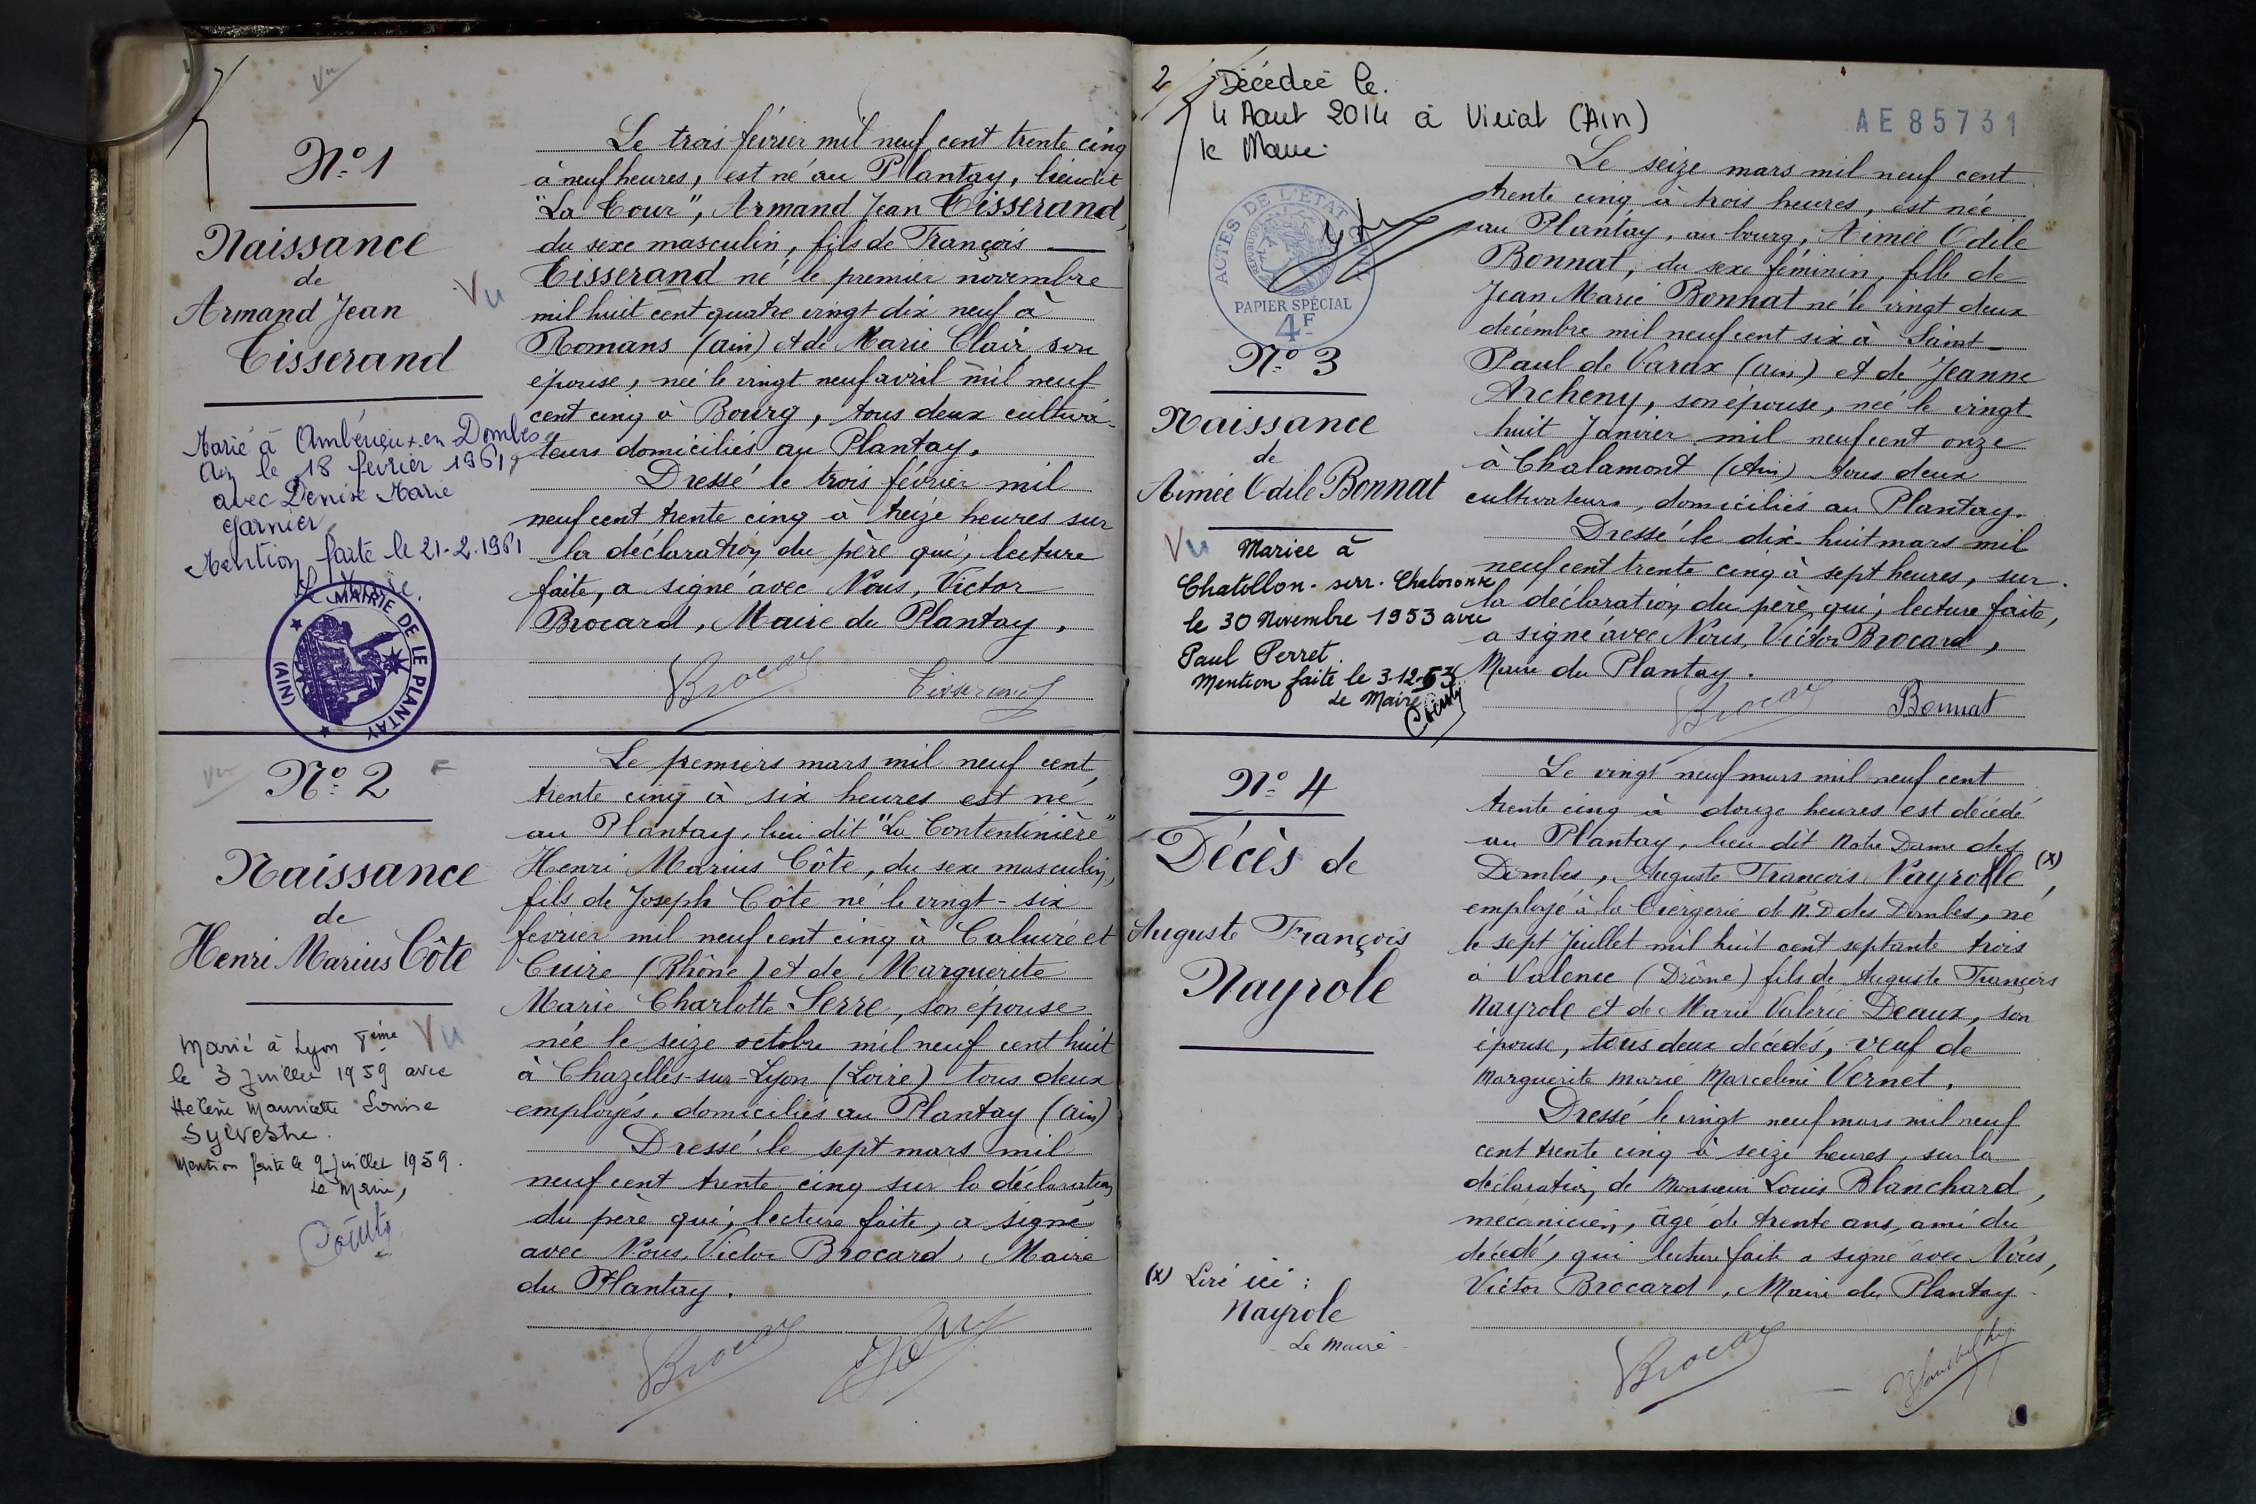 Vu
N° 1
Naissance
de
Armand Jean
Tisserand
Vu
Marié à Ambérieux-en Dombes
Ain le 18 février 1961
avec Denise Marie
Garnier
Mention faite le 21-2-1961
Le Maire.
MAIRIE DE LE PLANTAY
(AIN)
Le trois février mil neuf cent trente cinq
à neuf heures, est né au Plantay, lieudit
"La Cour", Armand Jean Tisserand,
du sexe masculin, fils de François
Tisserand né le premier novembre
mil huit cent quatre vingt dix neuf à
Romans (ain) et de Marie Clair son
épouse, née le vingt neuf avril mil neuf
cent cinq à Bourg, tous deux cultiva-
teurs domiciliés au Plantay.
Dressé le trois février mil
neuf cent trente cinq à treize heures sur
la déclaration du père qui, lecture
faite, a signé avec Nous, Victor
Brocard, Maire du Plantay.
Brocard Tisserand
Vu
N° 2
Naissance
de
Henri Marius Côte
Vu
Marié à Lyon 7ème
le 3 Juillet 1959 avec
Hélène Mauricette Louise
Sylvestre.
Mention faite le 9 Juillet 1959.
Le Maire,
Le premiers mars mil neuf cent
trente cinq à six heures est né
au Plantay, lieu dit "La Contentinière"
Henri Marius Côte, du sexe masculin,
fils de Joseph Côte né le vingt-six
février mil neuf cent cinq à Caluire et
Cuire (Rhône) et de Marguerite
Marie Charlotte Serre, son épouse
née le seize octobre mil neuf cent huit
à Chazelles-sur-Lyon (Loire) tous deux
employés, domiciliés au Plantay (ain)
Dressé le sept mars mil
neuf cent trente cinq sur la déclaration
du père qui, lecture faite, a signé
avec Nous, Victor Brocard, Maire
du Plantay.
Brocard
2
Décédée le.
4 Aout 2014 à Viriat (Ain)
le Maire.
AE85731
ACTES DE L'ÉTAT CIVIL
PAPIER SPÉCIAL
4F
N° 3
Naissance
de
Aimée Odile Bonnat
Vu
Mariée à
Chatillon-sur-Chalaronne
le 30 Novembre 1953 avec
Paul Perret.
Mention faite le 3-12-53
Le Maire
Le seize mars mil neuf cent
trente cinq à trois heures, est née
au Plantay, au bourg, Aimée Odile
Bonnat, du sexe féminin, fille de
Jean Marie Bonnat né le vingt deux
décembre mil neuf cent six à Saint-
Paul de Varax (ain) et de Jeanne
Archeny, son épouse, née le vingt
huit Janvier mil neuf cent onze
à Chalamont (Ain) tous deux
cultivateurs, domiciliés au Plantay.
Dressé le dix-huit mars mil
neuf cent trente cinq à sept heures, sur
la déclaration du père qui, lecture faite,
a signé avec Nous, Victor Brocard,
Maire du Plantay.
Brocard Bonnat
N° 4
Décès de
Auguste François
Nayrole
(x) Lire ici :
Nayrole
Le Maire
Le vingt neuf mars mil neuf cent
trente cinq à douze heures est décédé
au Plantay, lieu dit Notre Dame des
Dombes, Auguste François Nayrolle (x),
employé à la Ciergerie de N.D des Dombes, né
le sept Juillet mil huit cent septante trois
à Valence (Drôme) fils de Auguste François
Nayrole et de Marie Valérie Deaux, son
épouse, tous deux décédés, veuf de
Marguerite Marie Marceline Vernet.
Dressé le vingt neuf mars mil neuf
cent trente cinq à seize heures, sur la
déclaration de Monsieur Louis Blanchard,
mécanicien, âgé de trente ans, ami du
décédé, qui lecture faite a signé avec Nous,
Victor Brocard, Maire du Plantay.
Brocard